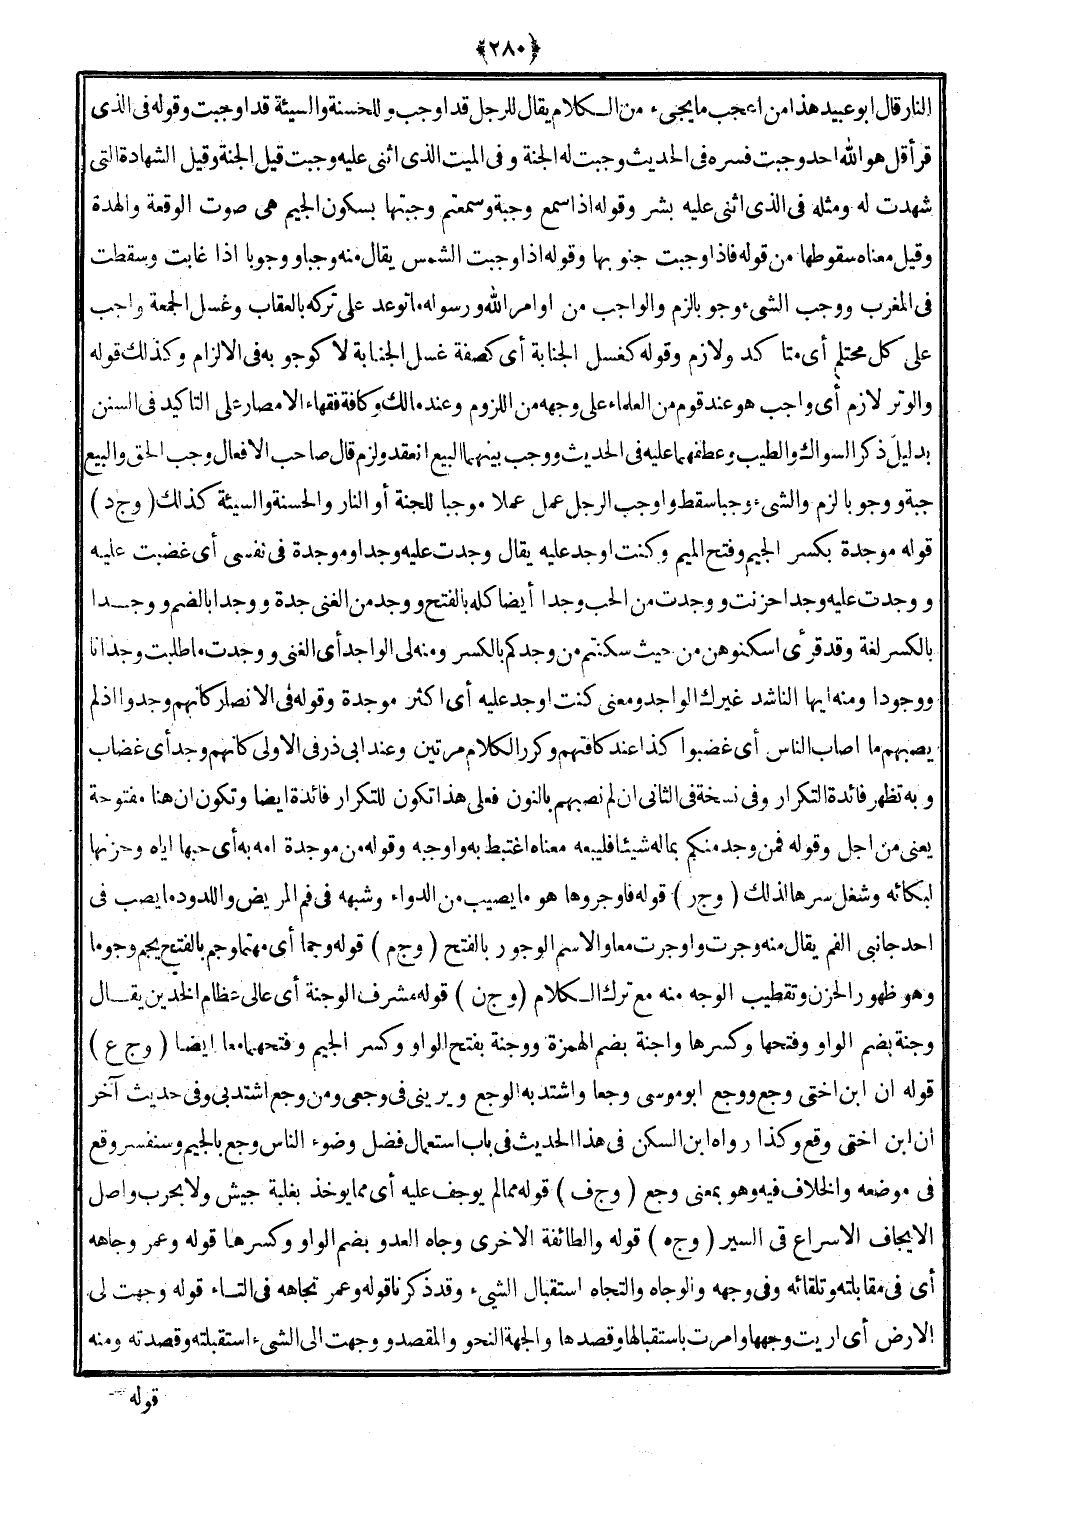 ﴿٢٨٠﴾
النار قال ابو عبيد هذا من اعجب مايجىء من الكلام يقال للرجل قد اوجب وللحسنة والسيئة قد اوجبت وقوله فى الذى
قرأ قل هو الله احد وجبت فسره فى الحديث وجبت له الجنة وفى الميت الذى اثنى عليه وجبت قيل الجنة وقيل الشهادة التى
شهدت له ومثله فى الذى اثنى عليه بشر وقوله اذا سمع وجبة وسمعتم وجبتها بسكون الجيم هى صوت الوقعة والهدة
وقيل معناه سقوطها من قوله فاذا وجبت جنوبها وقوله اذا وجبت الشمس يقال منه وجبا ووجوبا اذا غابت وسقطت
فى المغرب ووجب الشىء وجوبا لزم والواجب من اوامر الله ورسوله ماتوعد على تركه بالعقاب وغسل الجمعة واجب
على كل محتلم أى متاكد ولازم وقوله كغسل الجنابة أى كصفة غسل الجنابة لا كوجوبه فى الالزام وكذلك قوله
والوتر لازم أى واجب هو عند قوم من العلماء على وجهه من اللزوم وعند مالك وكافة فقهاء الامصار على التاكيد فى السنن
بدليل ذكر السواك والطيب وعطفهما عليه فى الحديث ووجب بينهما البيع انعقد ولزم قال صاحب الافعال وجب الحق والبيع
جبة ووجوبا لزم والشىء وجبا سقط واوجب الرجل عمل عملا موجبا للجنة أو النار والحسنة والسيئة كذلك ( وج د )
قوله موجدة بكسر الجيم وفتح الميم وكنت اوجد عليه يقال وجدت عليه وجدا وموجدة فى نفسى أى غضبت عليه
ووجدت عليه وجدا حزنت ووجدت من الحب وجدا أيضا كله بالفتح ووجد من الغنى جدة ووجدا بالضم ووجدا
بالكسر لغة وقد قرئ اسكنوهن من حيث سكنتم من وجدكم بالكسر ومنه لى الواجد أى الغنى ووجدت ماطلبت وجدانا
ووجودا ومنه ايها الناشد غيرك الواجد ومعنى كنت اوجد عليه أى اكثر موجدة وقوله فى الانصار كانهم وجدوا اذلم
يصبهم ما اصاب الناس أى غضبوا كذا عند كافتهم وكرر الكلام مرتين وعند ابى ذر فى الاولى كانهم وجد أى غضاب
وبه تظهر فائدة التكرار وفى نسخة فى الثانى ان لم نصبهم بالنون فعلى هذا تكون للتكرار فائدة ايضا وتكون ان هنا مفتوحة
يعنى من اجل وقوله فمن وجد منكم بماله شيئا فليبعه معناه اغتبط به واوجبه وقوله من موجدة امه به أى حبها اياه وحزنها
لبكائه وشغل سرها لذلك ( وج ر ) قوله فاوجروها هو مايصيب من الدواء وشبهه فى فم المريض واللدود مايصب فى
احد جانبى الفم يقال منه وجرت واوجرت معا والاسم الوجور بالفتح ( وج م ) قوله وجما أى مهتما وجم بالفتح يجم وجوما
وهو ظهور الحزن وتقطيب الوجه منه مع ترك الكلام ( وج ن ) قوله مشرف الوجنة أى عالى عظام الخدين يقال
وجنة بضم الواو وفتحها وكسرها واجنة بضم الهمزة ووجنة بفتح الواو وكسر الجيم وفتحهما معا ايضا ( وج ع )
قوله ان ابن اختى وجع ووجع ابو موسى وجعا واشتد به الوجع ويرينى فى وجعى ومن وجع اشتد بى وفى حديث آخر
ان ابن اختى وقع وكذا رواه ابن السكن فى هذا الحديث فى باب استعمال فضل وضوء الناس وجع بالجيم وسنفسر وقع
فى موضعه والخلاف فيه وهو بمعنى وجع ( وج ف ) قوله ممالم يوجف عليه أى مما يوخذ بغلبة جيش ولا بحرب واصل
الايجاف الاسراع فى السير ( وج ه ) قوله والطائفة الاخرى وجاه العدو بضم الواو وكسرها قوله وعمر وجاهه
أى فى مقابلته وتلقائه وفى وجهه والوجاه والتجاه استقبال الشىء وقد ذكرنا قوله وعمر تجاهه فى التاء قوله وجهت لى
الارض أى اريت وجهها وامرت باستقبالها وقصدها والجهة النحو والمقصد ووجهت الى الشىء استقبلته وقصدته ومنه
قوله